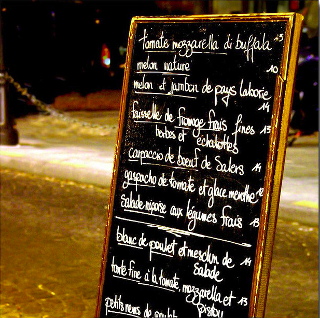 tomate mozzarella di buffala 13
melon nature 10
melon et jambon de pays laborie
14
faisselle de fromage frais fines 13
herbes et échalottes
carpaccio de boeuf de Salers 14
gaspacho de tomate et glace menthe 12
salade niçoise aux légumes frais 13
blanc de poulet et mesclun de 14
salade
tarte fine à la tomate, mozzarella et 13
pistou
petits nems de